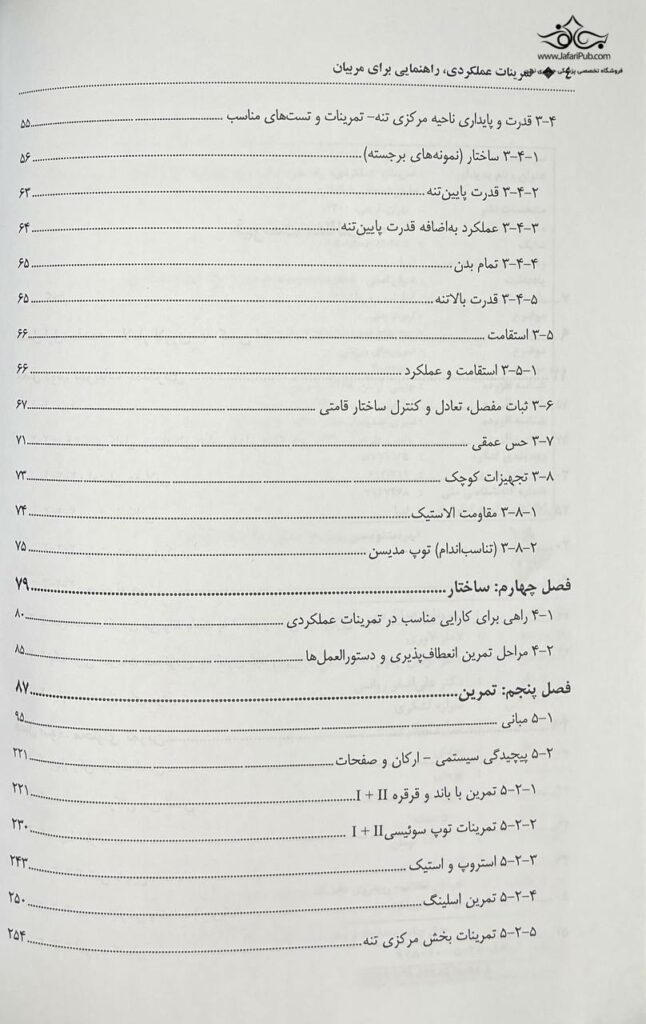 www.JafariPub.com
تمرینات عملکردی، راهنمایی برای مربیان
۳-۴ قدرت و پایداری ناحیه مرکزی تنه- تمرینات و تست‌های مناسب ۵۵
۳-۴-۱ ساختار (نمونه‌های برجسته) ۵۶
۳-۴-۲ قدرت پایین‌تنه ۶۳
۳-۴-۳ عملکرد به‌اضافه قدرت پایین‌تنه ۶۴
۳-۴-۴ تمام بدن ۶۵
۳-۴-۵ قدرت بالاتنه ۶۵
۳-۵ استقامت ۶۶
۳-۵-۱ استقامت و عملکرد ۶۶
۳-۶ ثبات مفصل، تعادل و کنترل ساختار قامتی ۶۷
۳-۷ حس عمقی ۷۱
۳-۸ تجهیزات کوچک ۷۳
۳-۸-۱ مقاومت الاستیک ۷۴
۳-۸-۲ (تناسب‌اندام) توپ مدیسن ۷۵
فصل چهارم: ساختار ۷۹
۴-۱ راهی برای کارایی مناسب در تمرینات عملکردی ۸۰
۴-۲ مراحل تمرین انعطاف‌پذیری و دستورالعمل‌ها ۸۵
فصل پنجم: تمرین ۸۷
۵-۱ مبانی ۹۵
۵-۲ پیچیدگی سیستمی – ارکان و صفحات ۲۲۱
۵-۲-۱ تمرین با باند و قرقره I + II ۲۲۱
۵-۲-۲ تمرینات توپ سوئیسی I + II ۲۳۰
۵-۲-۳ استروپ و استیک ۲۴۳
۵-۲-۴ تمرین اسلینگ ۲۵۰
۵-۲-۵ تمرینات بخش مرکزی تنه ۲۵۴